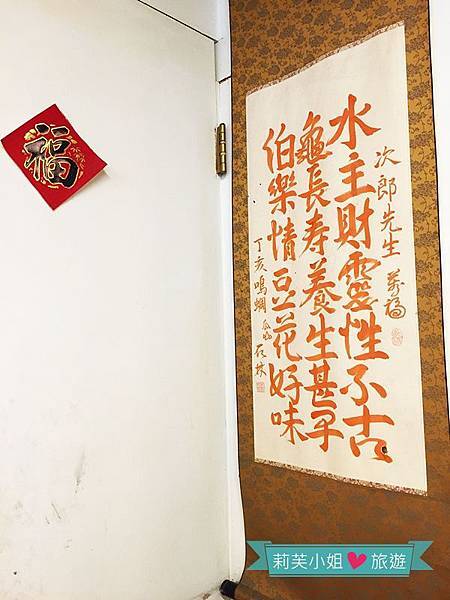 福
次郎先生 萬福
水主財靈性不古
龜長寿養生甚早
伯樂情豆花好味
丁亥鳴蜩
莉芙小姐❤旅遊